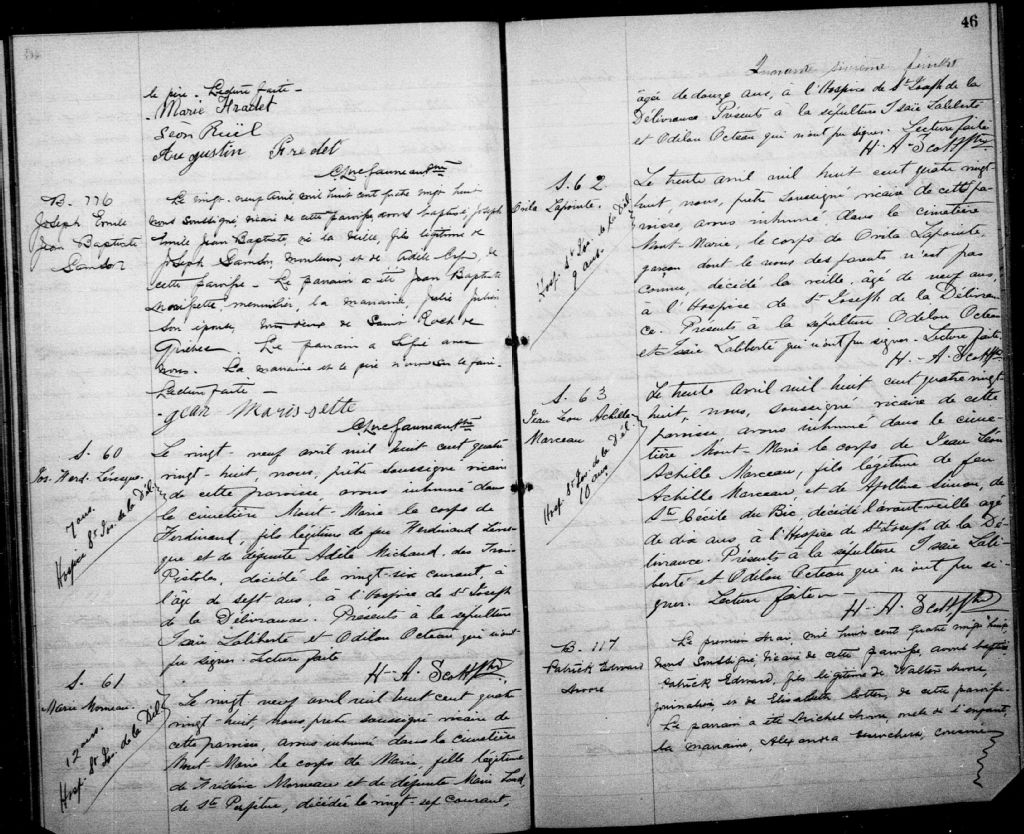 le père. Lecture faite –
Marie Fradet
Léon Ruël
Augustin Fredet
B. 116
Joseph Emile
Jean Baptiste
Le vingt-neuf avril mil huit cent quatre vingt huit
nous soussigné, vicaire de cette paroisse, avons baptisé, Joseph
Emile Jean Baptiste, né la veille, fils légitime de
Joseph mouleur, et de Adèle de
cette paroisse. Le parrain a été Jean Baptiste
Morissette, menuisier, la marraine, Julie Julien
son épouse, tous deux de Saint Roch de
Québec. Le parrain a signé avec
nous. La marraine et le père n'ont su le faire.
Lecture faite –
Jean Morissette
S. 60
Jos. Ferd. Lévesque.
7 ans.
Hospice St Jos. de la Dél.
Le vingt-neuf avril mil huit cent quatre
vingt-huit, nous, prêtre soussigné vicaire
de cette paroisse, avons inhumé dans
le cimetière Mont-Marie le corps de
Ferdinand, fils légitime de feu Ferdinand Léves-
que et de défunte Adèle Michaud, des Trois
Pistoles, décédé le vingt-six courant, à
l'âge de sept ans, à l'Hospice de St Joseph
de la Délivrance. Présents à la sépulture
Isaïe Laliberté et Odilon Octeau qui n'ont
pu signer. Lecture faite
H.-A. Scott, Ptre
S. 61
Marie Morneau.
12 ans.
Hosp. St Jos. de la Dél.
Le vingt neuf avril mil huit cent quatre
vingt-huit nous prêtre soussigné vicaire de
cette paroisse, avons inhumé dans le cimetière
Mont Marie le corps de Marie, fille légitime
de Frédéric Morneau et de défunte Marie Lord,
de Ste Perpétue, décédée le vingt-sept courant,
46
Quarante sixième feuillet
âgée de douze ans, à l'Hospice de St Joseph de la
Délivrance. Présents à la sépulture Isaïe Laliberté
et Odilon Octeau qui n'ont pu signer. Lecture faite
H.-A. Scott Ptre
S. 62
Ovila Lapointe.
Hosp. St Jos. de la Dél.
9 ans.
Le trente avril mil huit cent quatre vingt-
huit, nous, prêtre soussigné vicaire de cette pa-
roisse, avons inhumé dans le cimetière
Mont-Marie, le corps de Ovila Lapointe,
garçon dont le nom des parents n'est pas
connu, décédé la veille, âgé de neuf ans,
à l'Hospice de St Joseph de la Délivran-
ce. Présents à la sépulture Odilon Octeau
et Isaïe Laliberté qui n'ont pu signer. Lecture faite
H.-A. Scott Ptre
S. 63
Jean Léon Achille
Marceau
Hosp. St Jos. de la Dél.
10 ans
Le trente avril mil huit cent quatre vingt
huit, nous, soussigné vicaire de cette
paroisse avons inhumé dans le cime-
tière Mont-Marie le corps de Jean Léon
Achille Marceau, fils légitime de feu
Achille Marceau, et de Apolline Simon, de
Ste Cécile du Bic, décédé l'avant-veille âgé
de dix ans, à l'Hospice de St Joseph de la Dé-
livrance. Présents à la sépulture Isaïe Lali-
berté et Odilon Octeau qui n'ont pu si-
gner. Lecture faite –
H.-A. Scott Ptre
B. 117
Patrick Edward
Moore
Le premier Mai, mil huit cent quatre vingt huit,
nous soussigné, vicaire de cette paroisse, avons baptisé
Patrick Edward, fils légitime de Walton Moore,
journalier et de Elisabeth de cette paroisse.
Le parrain a été Michel Moore, oncle de l'enfant,
la marraine, Alexandra cousine